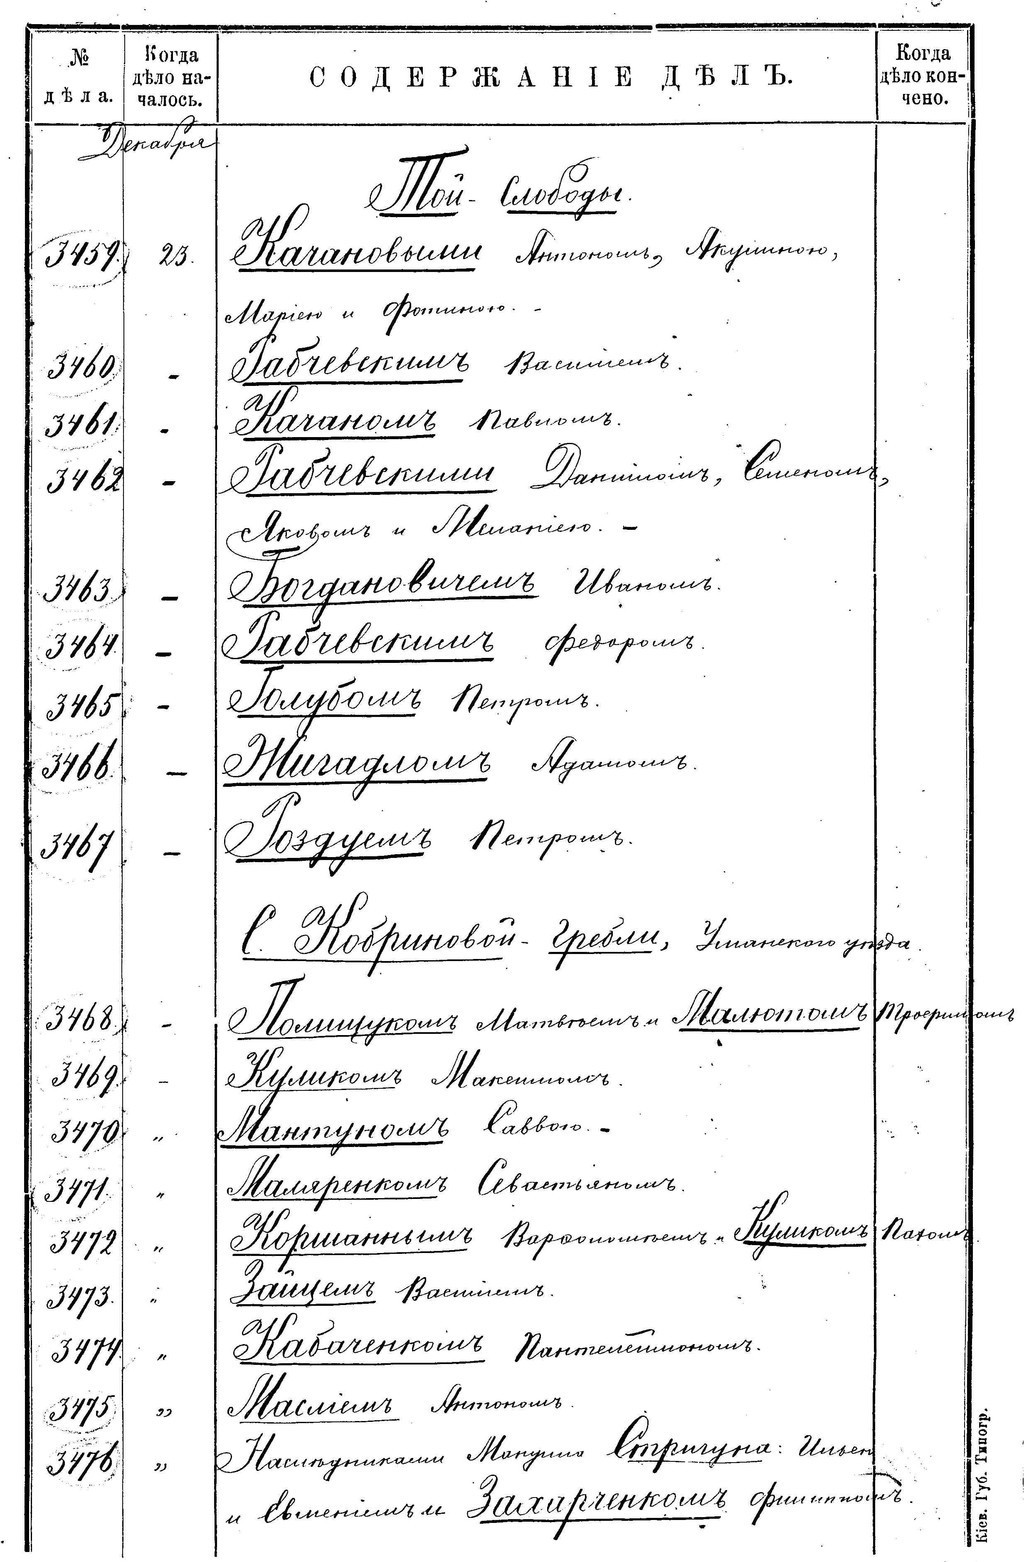 № дѣла.
Когда дѣло началось.
СОДЕРЖАНІЕ ДѢЛЪ.
Когда дѣло кончено.
Декабря
Той-Слободы.
3459. 23. Качановыми Антономъ, Акулиною,
Маріею и Фотиною. -
3460. - Рабчевскимъ Василіемъ.
3461. - Качаномъ Павломъ.
3462 - Рабчевскими Даниломъ, Семеномъ,
Яковомъ и Меланіею. -
3463. - Богдановичемъ Иваномъ.
3464. - Рабчевскимъ Федоромъ.
3465 - Голубомъ Петромъ.
3466. - Жигадломъ Адамомъ.
3467 - Роздуемъ Петромъ.
С. Кобриновой-Гребли, Уманского уѣзда.
3468. - Полищукомъ Матвѣемъ и Малютомъ Трофимомъ
3469. - Куликомъ Максимомъ.
3470. „ Мантуномъ Саввою. -
3471. „ Маляренкомъ Севастьяномъ.
3472 „ Коршаннымъ Варфоломѣемъ и Куликомъ
3473. „ Зайцемъ Василіемъ.
3474. „ Кабаченкомъ Пантелеймономъ.
3475 „ Масліемъ Антономъ.
3476. „ Наслѣдниками Стригуна:
и Евменіемъ и Захарченкомъ Филиппомъ.
Кіев. Губ. Типогр.